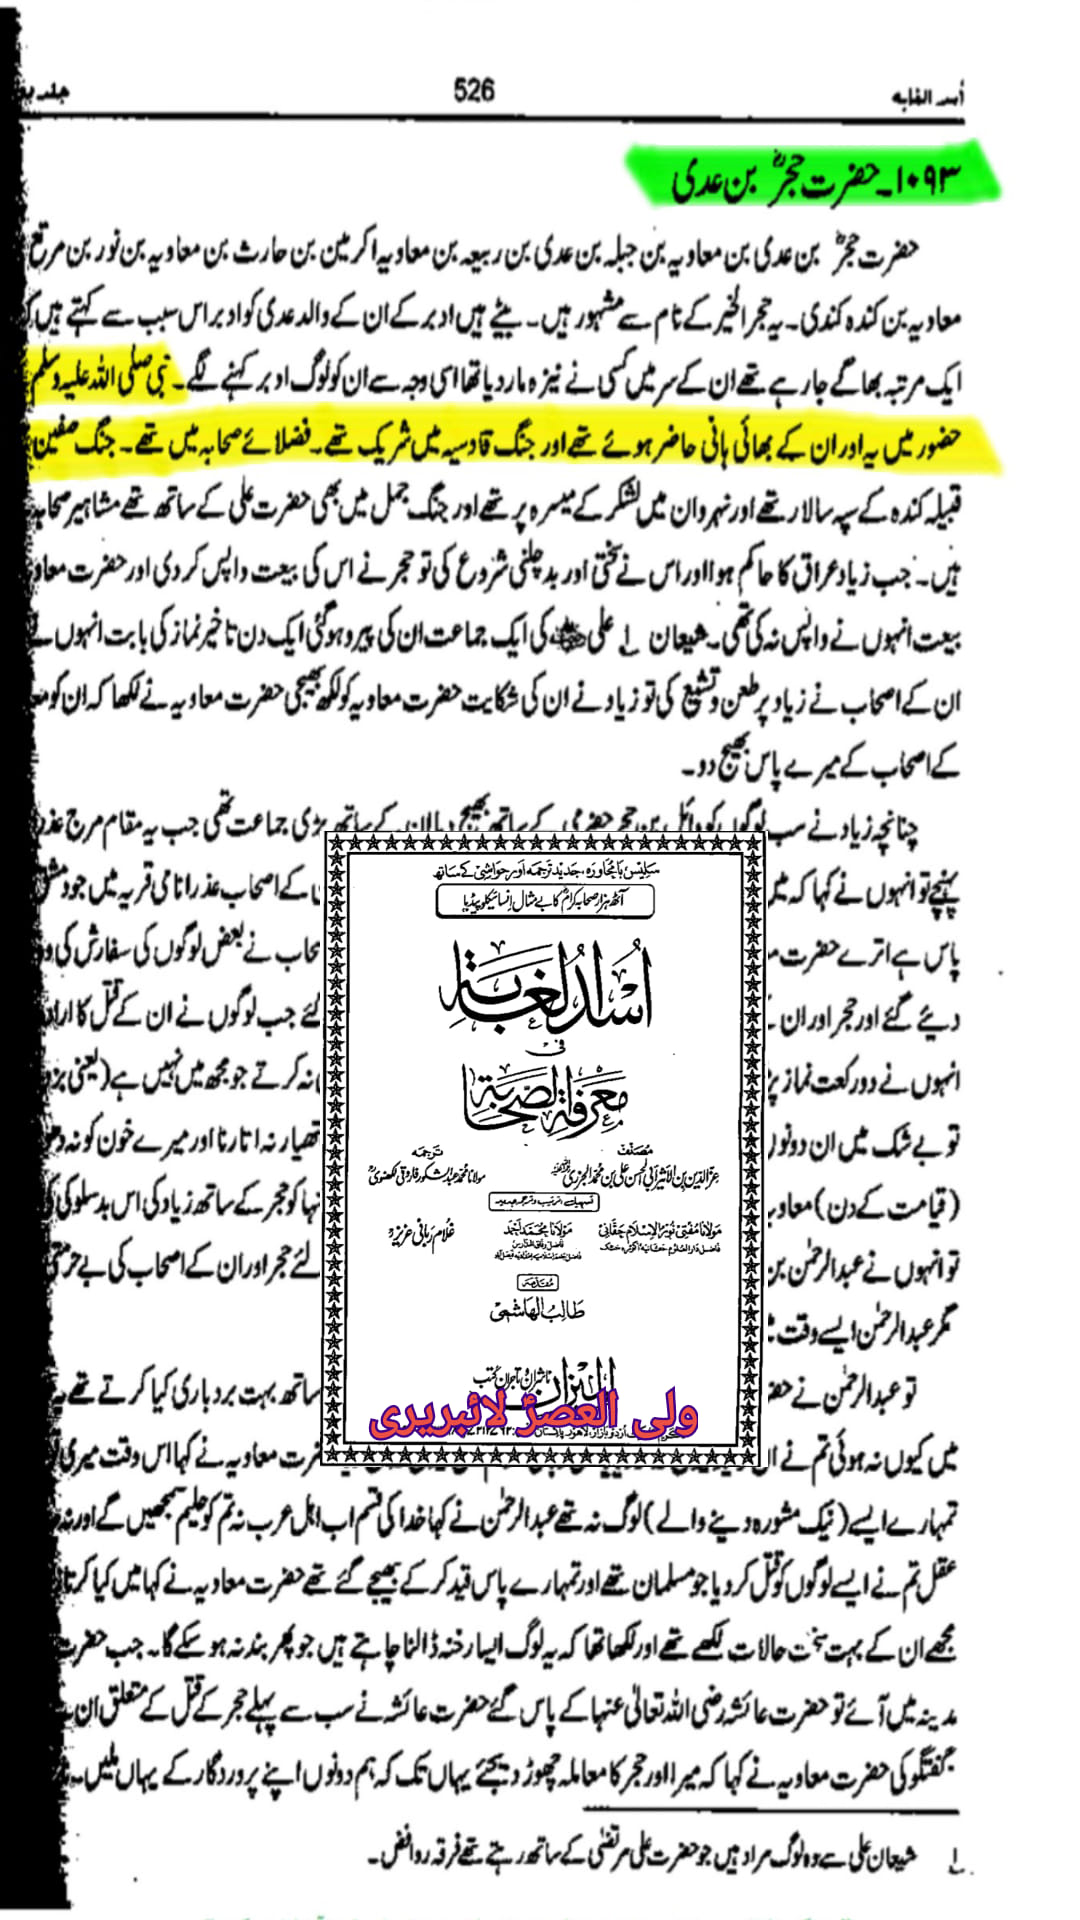 اُسد الغابہ
526
جلد
۱۰۹۳۔ حضرت حجرؓ بن عدی
حضرت حجرؓ بن عدی بن معاویہ بن جبلہ بن عدی بن ربیعہ بن معاویہ اکرمین بن حارث بن معاویہ بن ثور بن مرتع
معاویہ بن کندہ کندی۔ یہ حجر الخیر کے نام سے مشہور ہیں۔ بیٹے ہیں ادبر کے ان کے والد عدی کو ادبر اس سبب سے کہتے ہیں
ایک مرتبہ بھاگے جا رہے تھے ان کے سر میں کسی نے نیزہ مار دیا تھا اسی وجہ سے ان کو لوگ ادبر کہنے لگے۔ نبی صلی اللہ علیہ وسلم
حضور میں یہ اور ان کے بھائی ہانی حاضر ہوئے تھے اور جنگ قادسیہ میں شریک تھے۔ فضلائے صحابہ میں تھے۔ جنگ صفین
قبیلہ کندہ کے سپہ سالار تھے اور نہروان میں لشکر کے میسرہ پر تھے اور جنگ جمل میں بھی حضرت علی کے ساتھ تھے مشاہیر صحابہ
ہیں۔ جب زیاد عراق کا حاکم ہوا اور اس نے سختی اور بدچلنی شروع کی تو حجر نے اس کی بیعت واپس کر دی اور حضرت
بیعت انہوں نے واپس نہ کی تھی۔ شیعان ۱ علی کی ایک جماعت ان کی پیرو ہو گئی ایک دن تاخیر نماز کی بابت انہوں نے
ان کے اصحاب نے زیاد پر طعن و تشنیع کی تو زیاد نے ان کی شکایت حضرت معاویہ کو لکھ بھیجی حضرت معاویہ نے لکھا کہ ان کو
کے اصحاب کے میرے پاس بھیج دو۔
چنانچہ زیاد نے سب لوگوں کو وائل بن حجر حضرمی کے ساتھ بھیج دیا ان کے ساتھ بڑی جماعت تھی جب یہ مقام مرج
پہنچے تو انہوں نے کہا کہ میں کے اصحاب عذرا نامی قریہ میں جو دمشق
پاس ہے اترے حضرت نے بعض لوگوں کی سفارش کی
دیئے گئے اور حجر اور ان جب لوگوں نے ان کے قتل کا
انہوں نے دو رکعت نماز نہ کرتے جو مجھ میں نہیں ہے (یعنی
تو بے شک میں ان دونوں ہتھیار نہ اتارنا اور میرے خون کو نہ
(قیامت کے دن) کو حجر کے ساتھ زیاد کی اس بدسلوکی
تو انہوں نے عبدالرحمٰن بن لئے حجر اور ان کے اصحاب کی
مگر عبدالرحمٰن ایسے وقت
تو عبدالرحمٰن نے ساتھ بہت بردباری کیا کرتے تھے
میں کیوں نہ ہوئی تم نے معاویہ نے کہا اس وقت میری
تمہارے ایسے (نیک مشورہ دینے والے) لوگ نہ تھے عبدالرحمٰن نے کہا خدا کی قسم اب اہل عرب نہ تم کو حلیم سمجھیں گے اور نہ
عقل تم نے ایسے لوگوں کو قتل کر دیا جو مسلمان تھے اور تمہارے پاس قید کر کے بھیجے گئے تھے حضرت معاویہ نے کہا میں کیا کرتا
مجھے ان کے بہت سخت حالات لکھے تھے اور لکھا تھا کہ یہ لوگ ایسا رخنہ ڈالنا چاہتے ہیں جو پھر بند نہ ہو سکے گا۔ جب حضرت
مدینہ میں آئے تو حضرت عائشہ رضی اللہ تعالیٰ عنہا کے پاس گئے حضرت عائشہ نے سب سے پہلے حجر کے قتل کے متعلق ان
گفتگو کی حضرت معاویہ نے کہا کہ میرا اور حجر کا معاملہ چھوڑ دیجئے یہاں تک کہ ہم دونوں اپنے پروردگار کے یہاں ملیں۔
۱ شیعان علی سے وہ لوگ مراد ہیں جو حضرت علی مرتضیٰ کے ساتھ رہتے تھے فرقہ روافض۔
سلیس بامحاورہ، جدید ترجمہ اور حواشی کے ساتھ
آٹھ ہزار صحابہ کرامؓ کا بے مثال انسائیکلوپیڈیا
اُسْدُ الغَابَةِ
فی
مَعْرِفَةِ الصَّحَابَةِ
مصنف
عزالدین بن الاثیر ابی الحسن علی بن محمد الجزری
ترجمہ
مولانا محمد عبدالشکور فاروقی لکھنوی
غلام ربانی عزیز
مقدمہ
طالب الہاشمی
المیزان
ناشران و تاجران کتب
ولی العصرؑ لائبریری